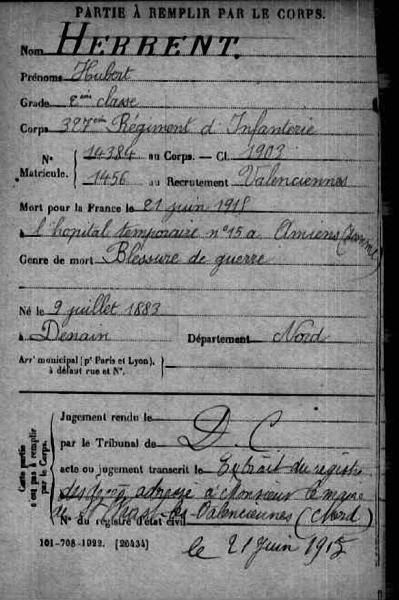 PARTIE À REMPLIR PAR LE CORPS.
Nom HERRENT.
Prénoms Hubert
Grade 2ème classe
Corps 327ème Régiment d'Infanterie
N° 14384 au Corps. — Cl. 1903
Matricule. 1456 au Recrutement Valenciennes
Mort pour la France le 21 juin 1915
à l'hopital temporaire n°15 a Amiens (Somme)
Genre de mort Blessure de guerre
Né le 9 juillet 1883
à Denain Département Nord
Arrt municipal (pr Paris et Lyon),
à défaut rue et N°.
Cette partie
n'est pas à remplir
par le Corps.
Jugement rendu le
par le Tribunal de D. C
acte ou jugement transcrit le Extrait du registre
des adresse à Monsieur le maire
de St Waast-les-Valenciennes (Nord)
N° du registre d'état civil
101-708-1922. [26434] le 21 Juin 1915